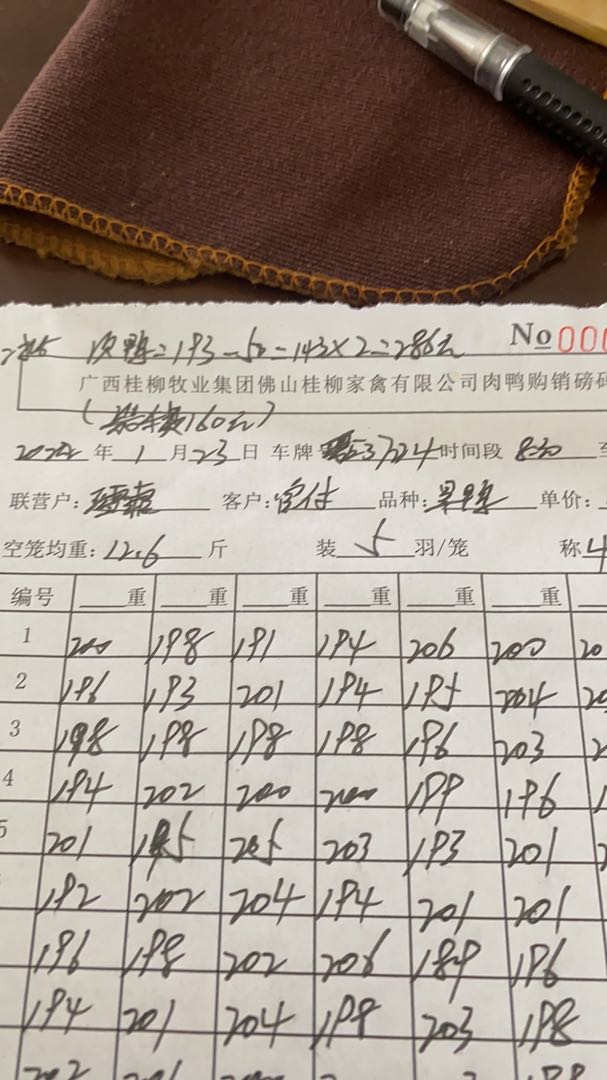 次鸭=193-50=143×2=286元 No 000
广西桂柳牧业集团佛山桂柳家禽有限公司肉鸭购销磅码
(装车费160元)
年 1 月 23 日 车牌 3724 时间段 8:30 至
联营户: 客户: 品种: 单价:
空笼均重: 12.6 斤 装 5 羽/笼 称 4
编号 重 重 重 重 重 重
1 200 198 191 194 206 200 20
2 196 193 201 194 195 204 20
3 198 198 198 198 196 203 2
4 194 202 200 200 199 196 1
5 201 195 205 203 193 201 2
192 202 204 194 201 201
196 198 202 206 189 196
194 201 204 199 203 198